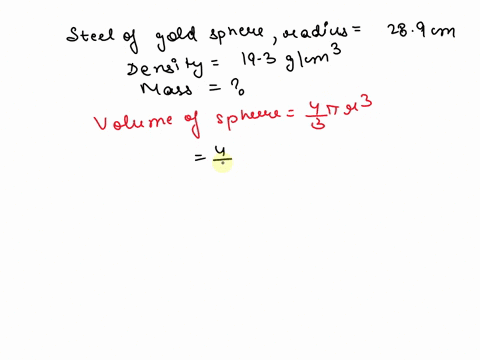 Steel of gold sphere, radius = 28.9 cm
Density = 19.3 g/cm³
Mass = ?
Volume of sphere = 4/3 π r³
= 4/